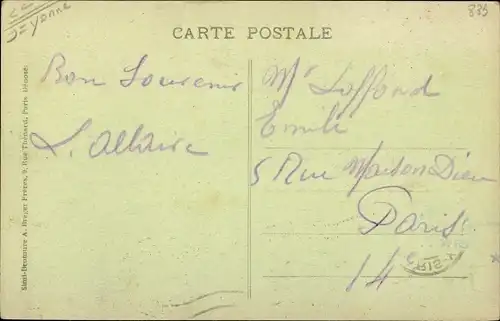 835
D=Yonne
CARTE POSTALE
Bon Souvenir
L. Allaire
Mr Laffond
Emile
5 Rue Maison Dieu
Paris
14
Simi-Bromure A. Breger Frères, 9, Rue Thénard, Paris